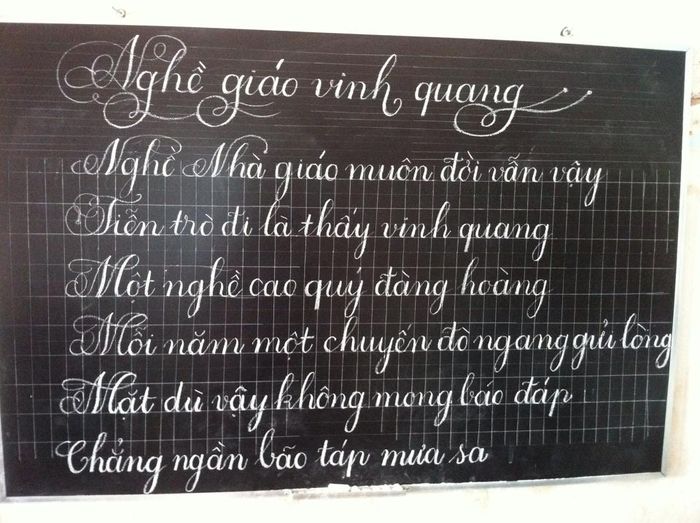 Nghề giáo vinh quang
Nghề Nhà giáo muôn đời vẫn vậy
Tiễn trò đi là thấy vinh quang
Một nghề cao quý đàng hoàng
Mỗi năm một chuyến đò ngang gửi lòng
Mặt dù vậy không mong báo đáp
Chẳng ngần bão táp mưa sa